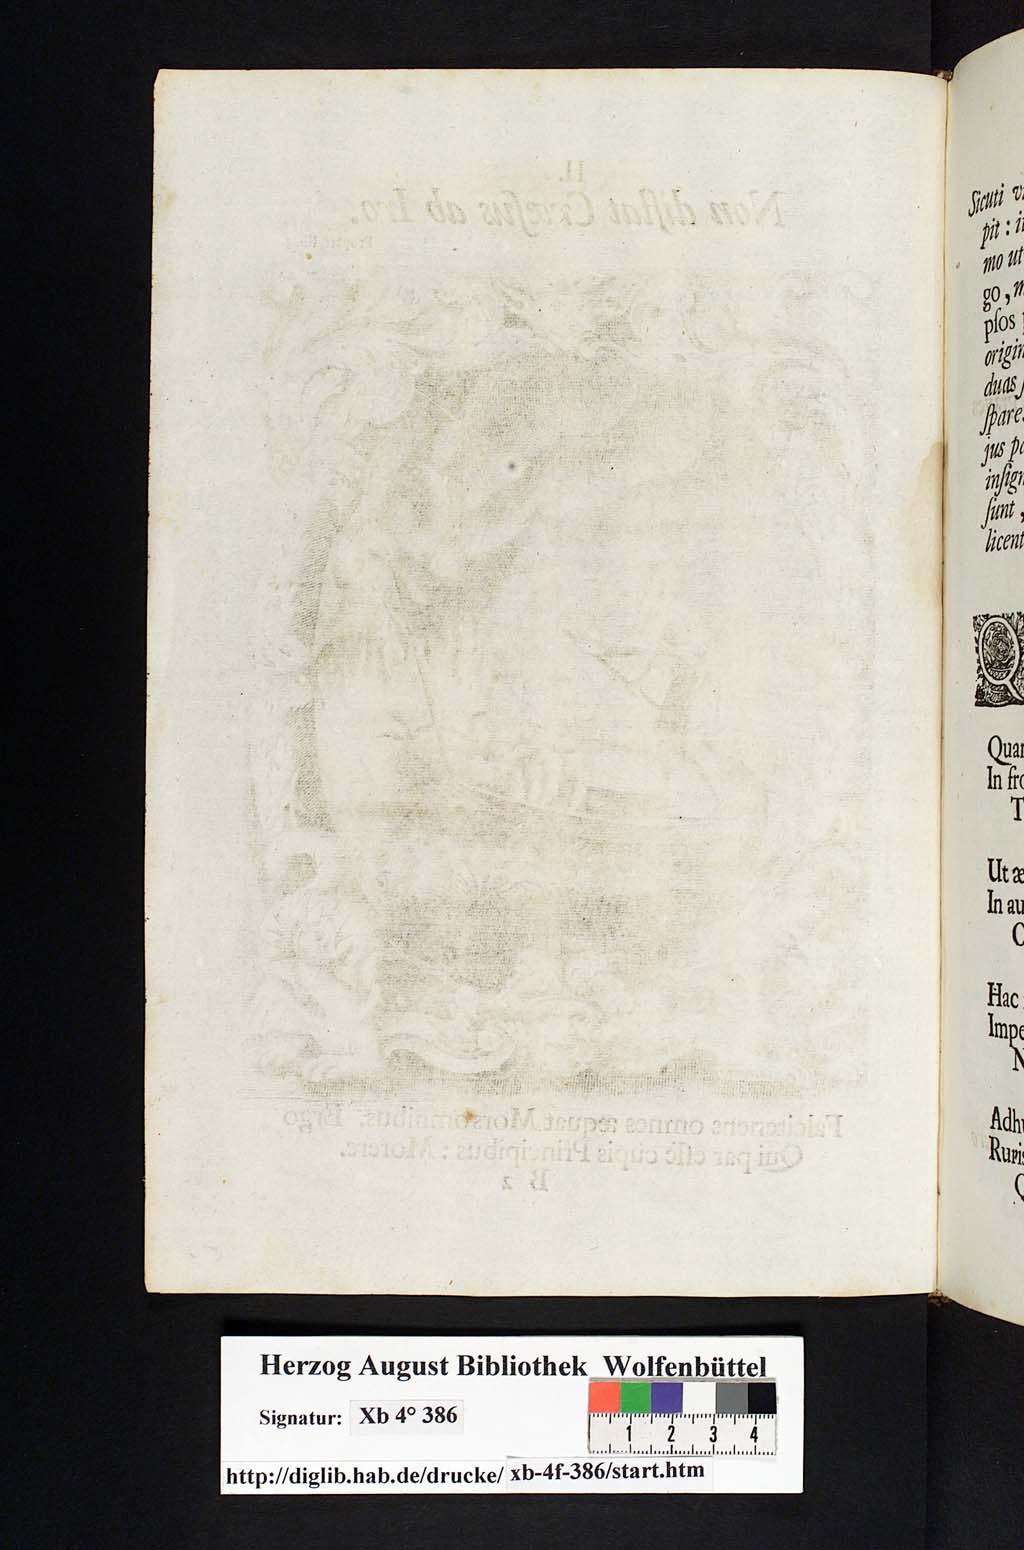 II.
Non diſtat Crœſus ab Iro.
Falcitenens omnes æquat Mors omnibus. Ergo
Qui par eſſe cupis Principibus: Morere.
B 2
Sicuti
pit:
mo ut
go,
pſos
origin
duas
ſpare
jus
inſign
ſunt,
licent
Q
Quan
In fro
T
Ut æ
In au
Hac
Impe
N
Adhu
Ruris
Q
Herzog August Bibliothek Wolfenbüttel
Signatur: Xb 4° 386
1 2 3 4
http://diglib.hab.de/drucke/ xb-4f-386/start.htm